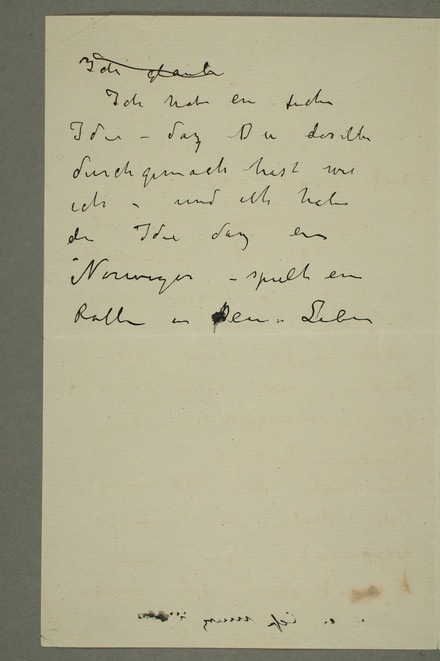 Ich glaube
Ich habe en
Idee – daz Du dasselbe
durchgemach hast wie
ich – und ich habe
die Idee daz en
Norweger – spielt ein
Rolle in Dein Leben